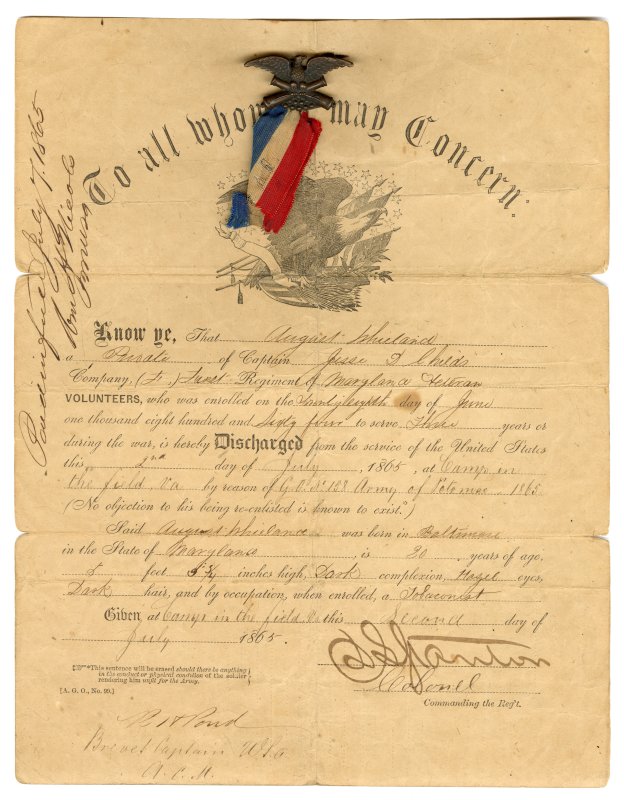 To all whom may Concern:
Paid in full July 7. 1865
Know ye, That August Whieland
a Private of Captain Jesse D Childs
Company, (F,) First Regiment of Maryland Veteran
VOLUNTEERS, who was enrolled on the Twentyeighth day of June
one thousand eight hundred and Sixty four to serve Three years or
during the war, is hereby Discharged from the service of the United States
this 2nd day of July, 1865, at Camp in
the field Va by reason of G.O. No 128 Army of Potomac 1865
(No objection to his being re-enlisted is known to exist.*)
Said August Whieland was born in Baltimore
in the State of Maryland is 20 years of age,
5 feet inches high, Dark complexion, Hazel eyes,
Dark hair, and by occupation, when enrolled, a Tobaconist
Given at Camp in the field Va this Second day of
July 1865.
Stanton
Colonel
Commanding the Reg't.
*This sentence will be erased should there be anything
in the conduct or physical condition of the soldier
rendering him unfit for the Army.
[A. G. O., No. 99.]
Pond
Brevet Captain U.S.A
A.C.M.